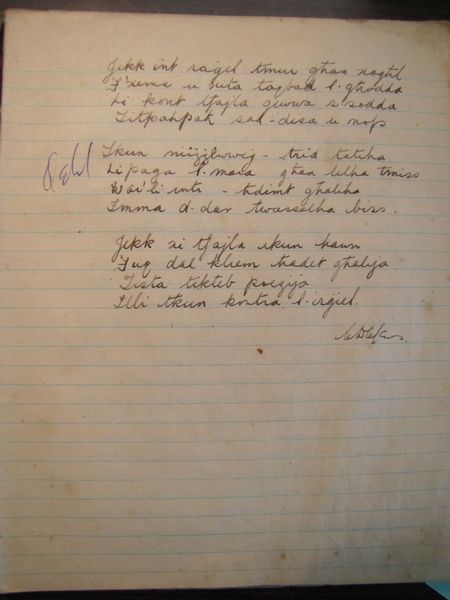 Jekk int raġel tmur għax xogħol
F'xemx u xita taqbad l-għodda
Li kont tfajla ġewwa s sodda
Titpaħpaħ sad-disa u nofs
Tkun miżżewweġ - trid tatiha
Li paga l. mara għax lilha tmiss
inti - ħdimt għaliha
Imma d. dar twassalha biss.
Jekk xi tfajla ikun hawn
Fuq dal kliem ħadet għalija
Tista tikteb poeżija
Illi tkun kontra l. irġiel.